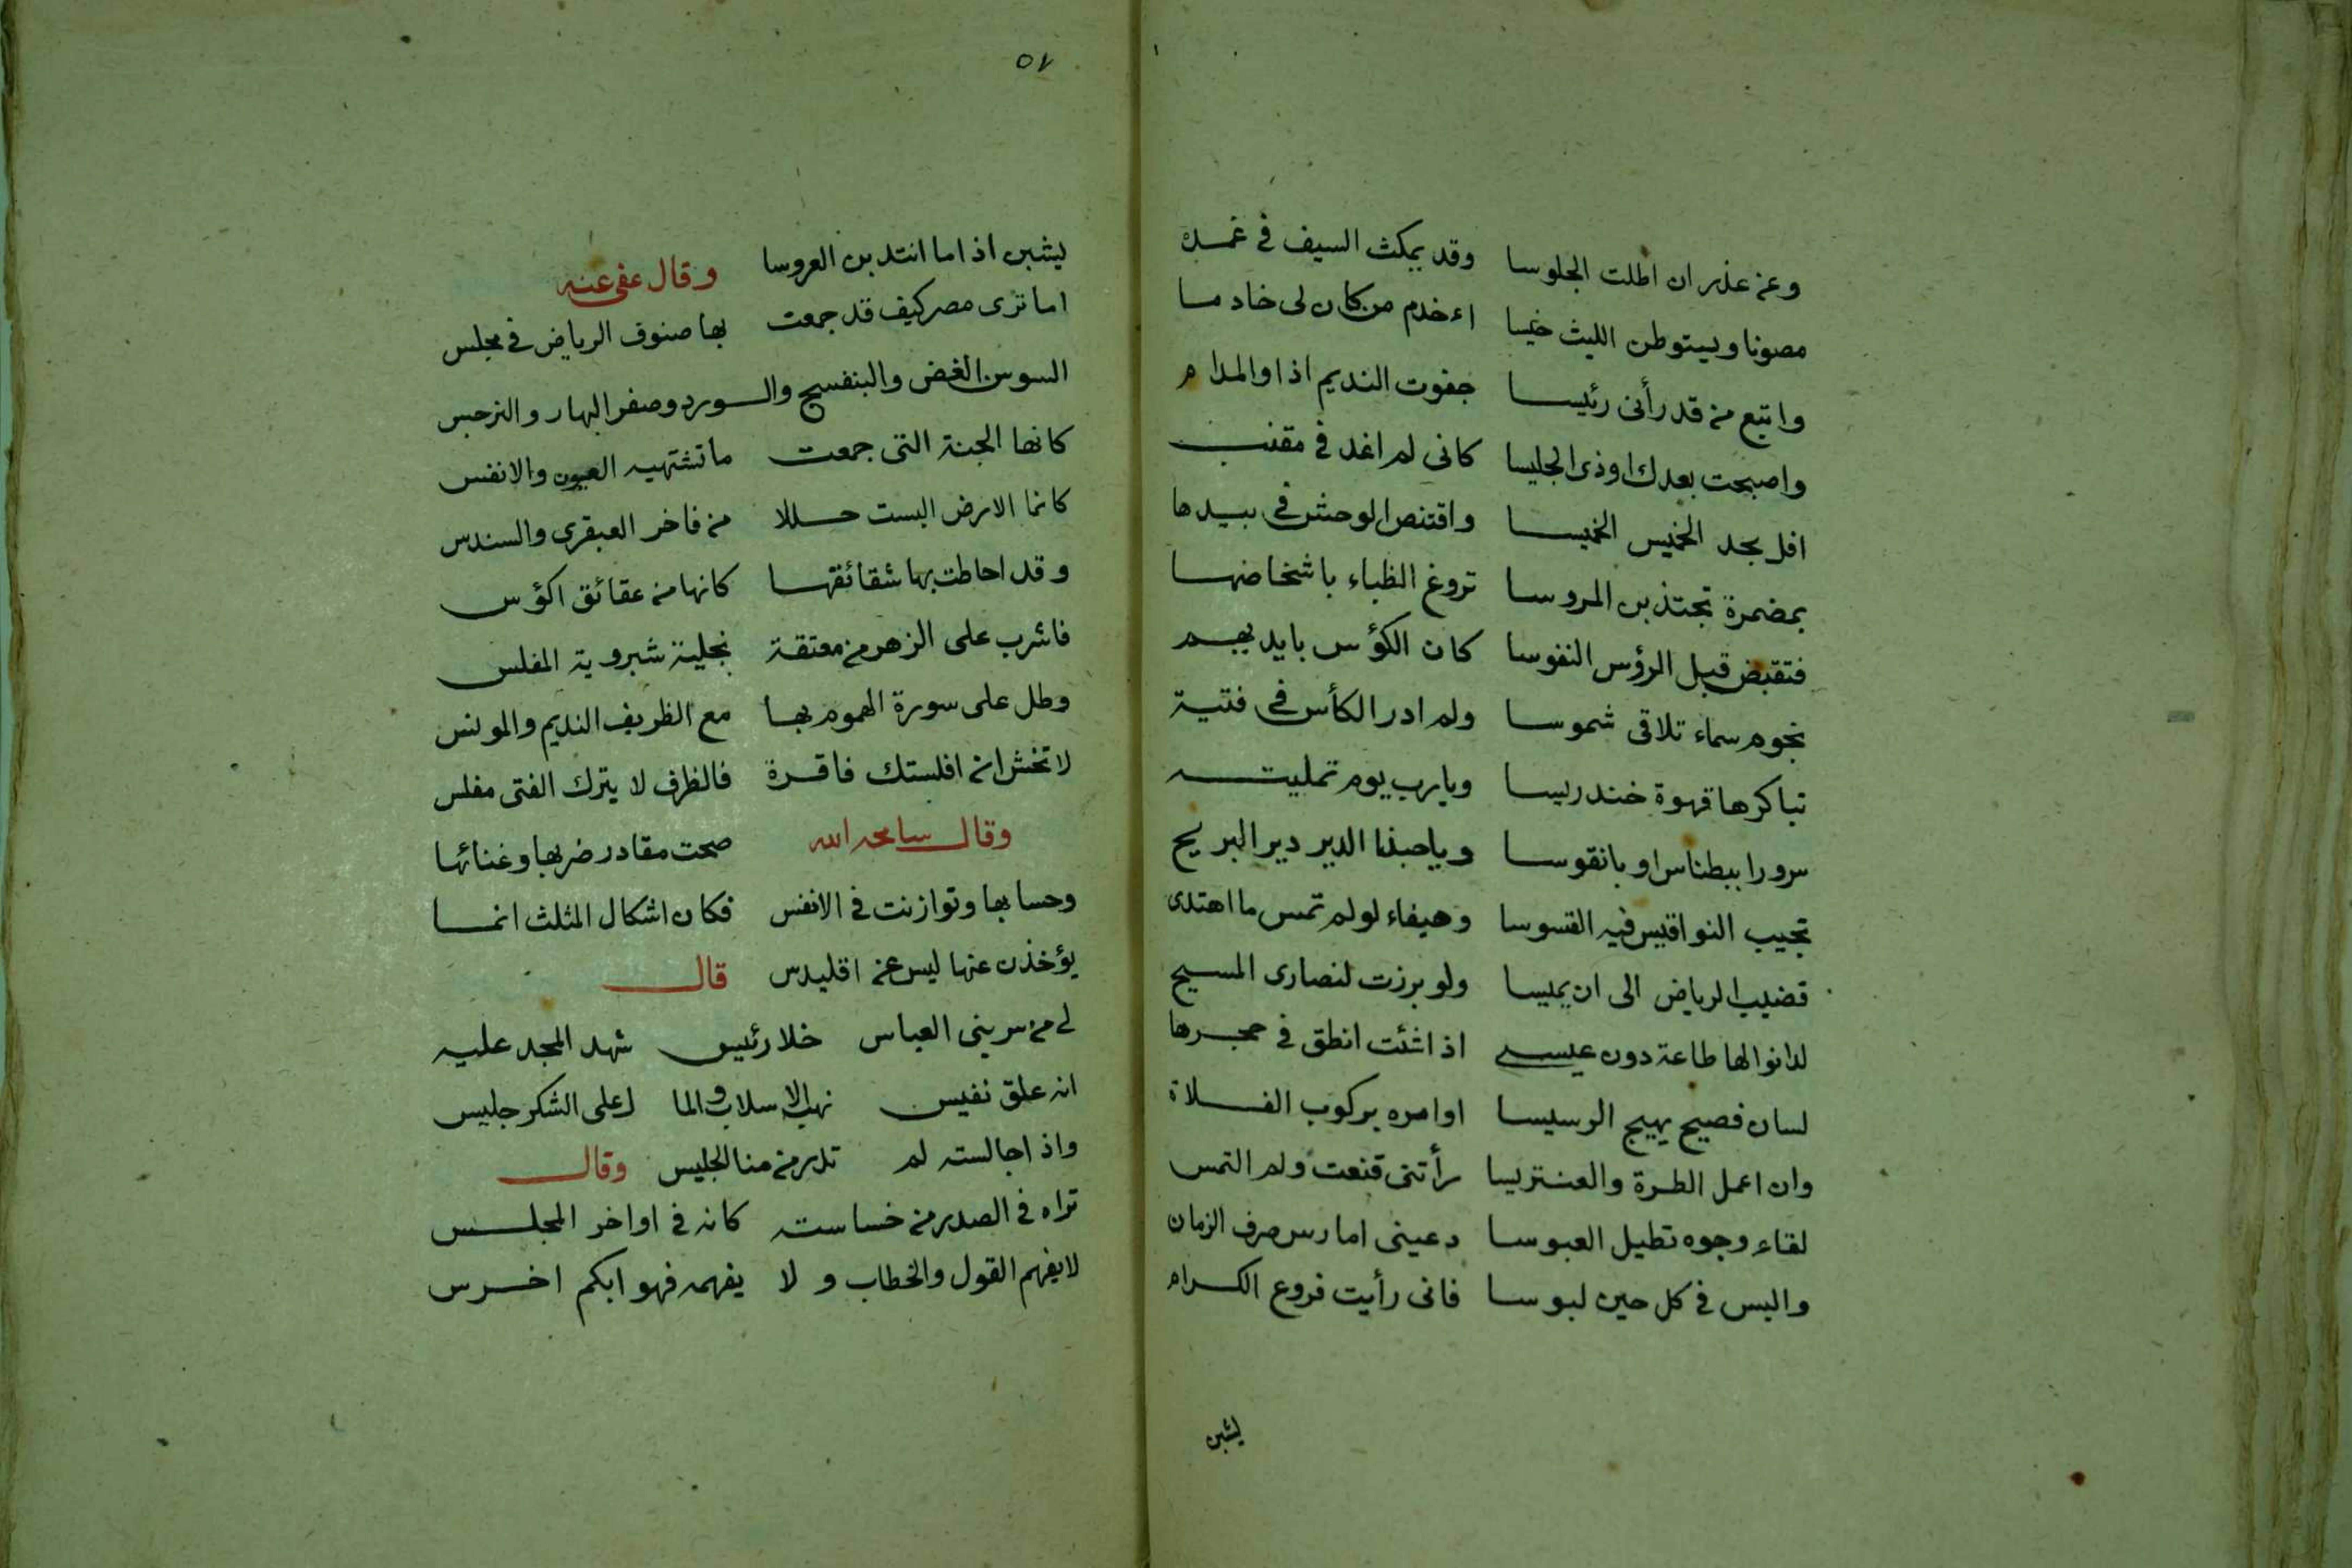 وعن عذر ان اطلت الجلوسا وقد يمكث السيف في غمده
مصونا ويستوطن الليث خيسا اءخدم من كان لى خادما
واتبع من قد رأنى رئيسا جفوت النديم اذا والمدام
واصبحت بعدك اوذى الجليسا كانى لم اغد في مقنب
افل بجد الخميس الخميسا واقتنص الوحش فى بيدها
بمضمرة تجتذبن المروسا تروغ الظباء باشخاصها
فتقبض قبل الرؤس النفوسا كان الكؤس بايديهم
نجوم سماء تلاقى شموسا ولم ادر الكأس فى فتية
تباكرها قهوة خندريسا ويارب يوم تمليته
سرورا ببطناس او بانقوسا وياحبذا الدير دير البريج
تجيب النواقيس فيه القسوسا وهيفاء لولم تمس ما اهتدى
قضيب الرياض الى ان يميسا ولو برزت لنصارى المسيح
لدانوا لها طاعة دون عيسى اذا شئت انطق في حجرها
لسان فصيح يهيج الرسيسا اوامره بركوب الفلاة
وان اعمل الطرة والعنتريسا رأتنى قنعت ولم التمس
لقاء وجوه تطيل العبوسا دعينى امارس صرف الزمان
والبس في كل حين لبوسا فانى رأيت فروع الكرام
يشبن
٥٧
يشبن اذاما انتدبن العروسا وقال عفى عنه
اما ترى مصر كيف قد جمعت بها صنوف الرياض في مجلس
السوسن الغض والبنفسج والورد وصفر البهار والنرجس
كانها الجنة التى جمعت ما تشتهيه العيون والانفس
كانما الارض البست حللا من فاخر العبقرى والسندس
وقد احاطت بها شقائقها كانها من عقائق اكؤس
فاشرب على الزهر من معتقة المفلس
وطل على سورة الهموم بها مع الظريف النديم والمونس
لا تخش ان افلستك فاقرة فالظرف لا يترك الفتى مفلس
وقال سامحه الله صحت مقادر ضربها وغنائها
وحسابها وتوازنت في الانفس فكان اشكال المثلث انما
يؤخذن عنها ليس عن اقليدس قال
لى من سر بنى العباس خلا رئيس شهد المجد عليه
انه علق نفيس نهب الاسلاب والما ل على الشكر جليس
واذا جالسته لم تدر من منا الجليس وقال
تراه في الصدر من خساسته كانه في اواخر المجلس
لايفهم القول والخطاب ولا يفهمه فهو ابكم اخرس